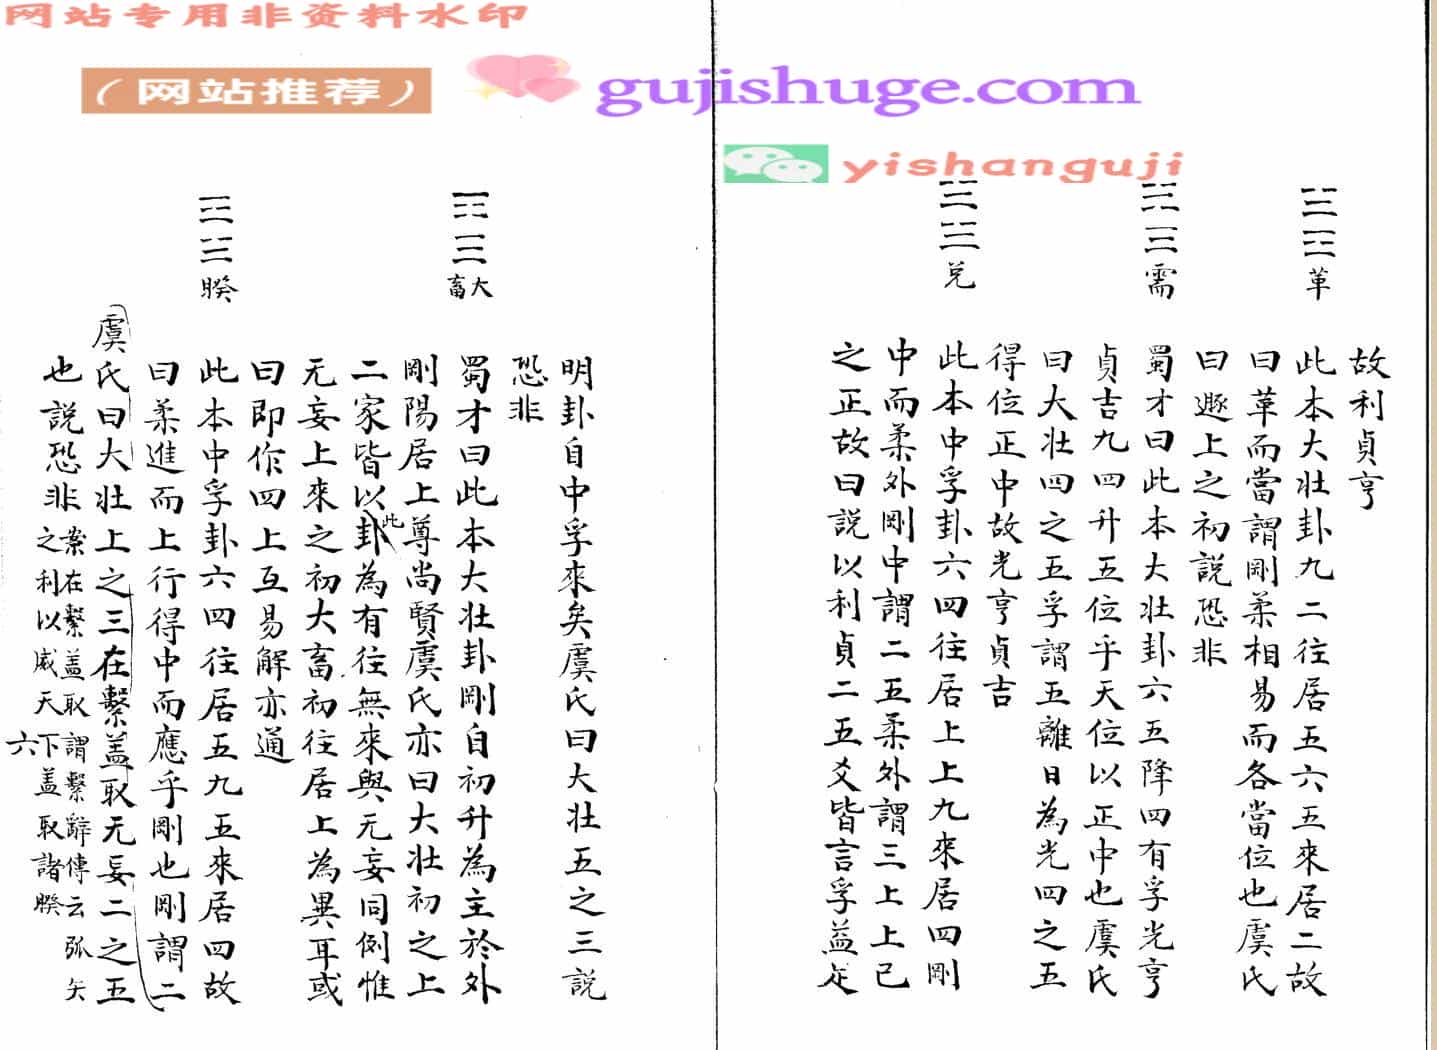 网站专用非资料水印
（网站推荐）
gujishuge.com
yishanguji
故利貞亨
革
此本大壯卦九二往居五六五來居二故
曰革而當謂剛柔相易而各當位也虞氏
曰遯上之初説恐非
需
蜀才曰此本大壯卦六五降四有孚光亨
貞吉九四升五位乎天位以正中也虞氏
曰大壯四之五孚謂五離日為光四之五
得位正中故光亨貞吉
兌
此本中孚卦六四往居上上九來居四剛
中而柔外剛中謂二五柔外謂三上上已
之正故曰説以利貞二五爻皆言孚益足
明卦自中孚來矣虞氏曰大壯五之三説
恐非
大畜
蜀才曰此本大壯卦剛自初升為主於外
剛陽居上尊尚賢虞氏亦曰大壯初之上
二家皆以此卦為有往無來與无妄同例惟
无妄上來之初大畜初往居上為異耳或
曰即作四上互易解亦通
睽
此本中孚卦六四往居五九五來居四故
曰柔進而上行得中而應乎剛也剛謂二
虞氏曰大壯上之三在繫盖取无妄二之五
也説恐非案在繫盖取謂繫辭傳云弧矢
之利以威天下盖取諸睽
六